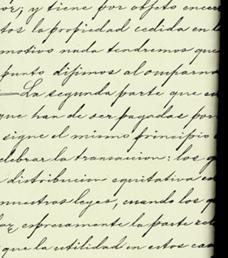 or; y tiene por objeto encon
tos la propiedad cedida en l
motivo nada tendremos que
punto dijimos al ompararno
—La segunda parte que es
que han de ser pagadas por
sigue el mismo principio
elebrar la transacion: los g
distribucion equitativa en
nuestras leyes, cuando los q
lor, espresamente la parte
que la utilidad en estos cas